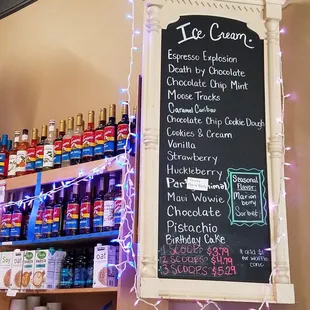 Ice Cream.
Espresso Explosion
Death by Chocolate
Chocolate Chip Mint
Moose Tracks
Caramel Caribou
Chocolate Chip Cookie Dough
Cookies & Cream
Vanilla
Strawberry
Huckleberry
Maui Wowie
Chocolate
Pistachio
Birthday Cake
1 SCOOP
2 SCOOPS $4.79
3 SCOOPS $5.29
Seasonal
Flavor:
Marion
berry
Sorbet
Soy
oat